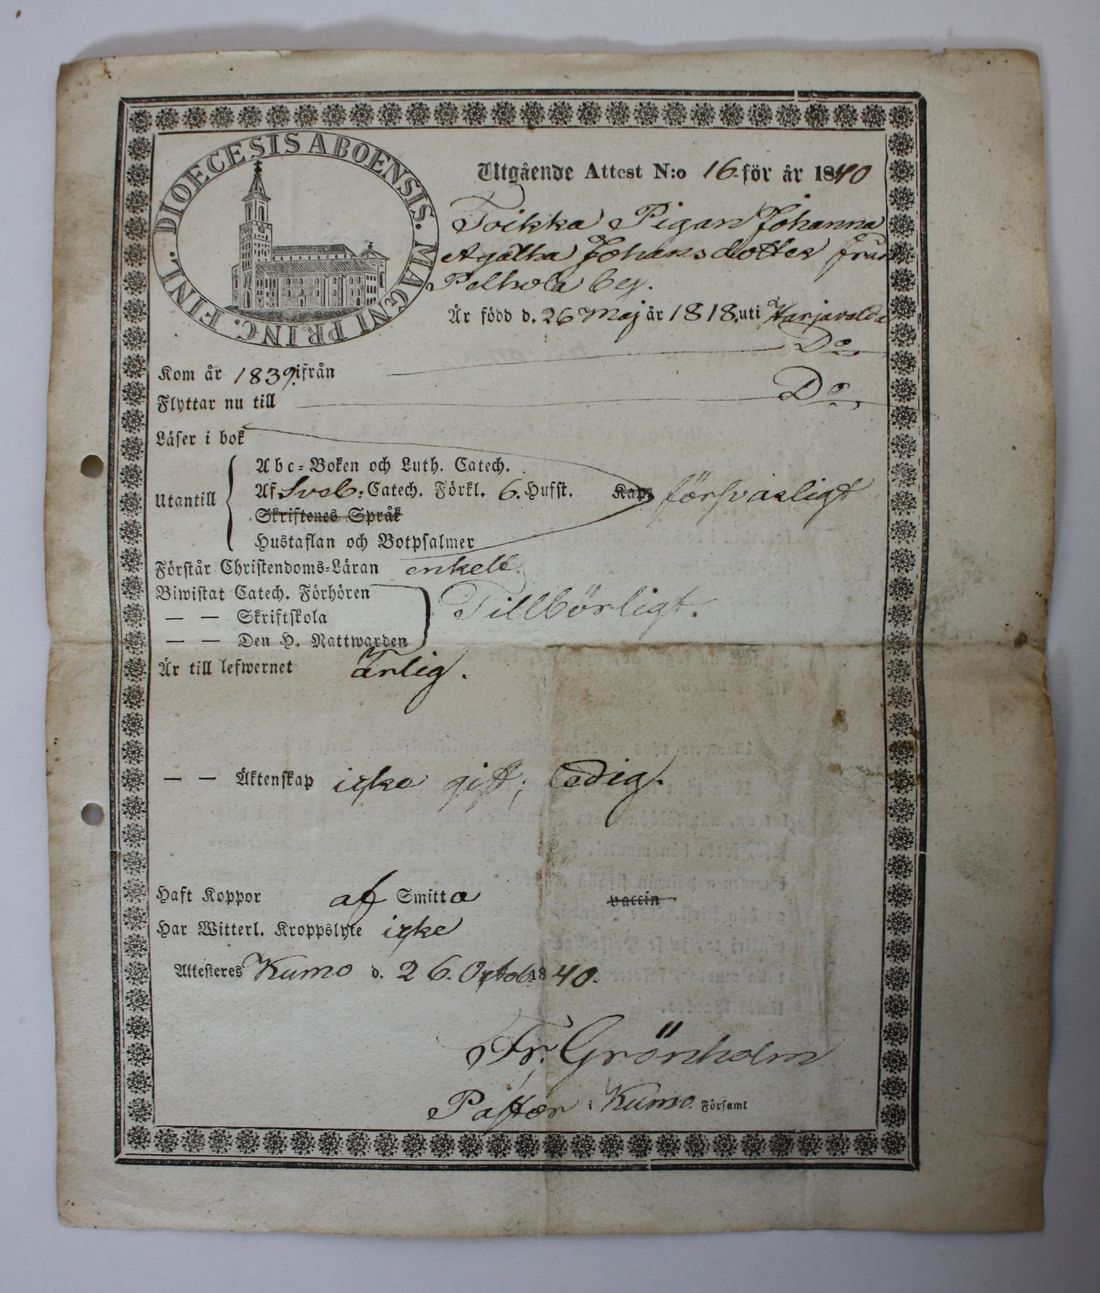 DIOECESIS ABOENSIS. MAGNI PRINC. FINL.
Utgående Attest N:o 16. för år 1840
Pigan Johanna
Agatha Johansdotter från
Pelhola by.
Är född d. 26 Maj år 1818. uti Harjavalda
Kom år 1839. ifrån Do
Flyttar nu till Do.
Läser i bok
Utantill
Abc-Boken och Luth. Catech.
Af Sveb. Catech. Förkl. 6. Hufst. försvarligt
Skriftenes Språk
Hustaflan och Botpsalmer
Förstår Christendoms-Läran enkelt.
Biwistat Catech. Förhören
— — Skriftskola Tillbörligt.
— — Den H. Nattwarden
Är till lefwernet ärlig.
— — Äktenskap icke gift, ledig.
Haft Koppor af Smitta vaccin
Har Witterl. Kroppslyte icke
Attesteres Kumo d. 26. Octob. 1840.
Fr. Grönholm
Pastor i Kumo Församl